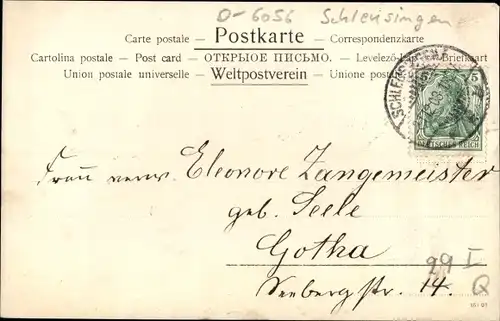 D-6056 Schleusingen
Carte postale – Postkarte – Correspondenzkarte
Cartolina postale – Post card – ОТКРЫТОЕ ПИСЬМО. – Levelező-Lap – Briefkaart
Union postale universelle – Weltpostverein – Unione postale
SCHLEUSINGEN
5
DEUTSCHES REICH
Frau verw. Eleonore Zangemeister
geb. Seele
Gotha
29 I
Seebergstr. 14. Q